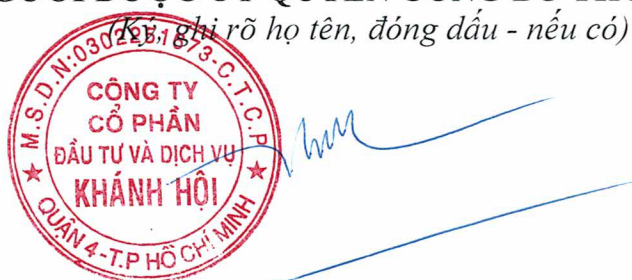 (Ký, ghi rõ họ tên, đóng dấu - nếu có)
M.S.D.N:0302251673-C.T.C.P
CÔNG TY
CỔ PHẦN
ĐẦU TƯ VÀ DỊCH VỤ
KHÁNH HỘI
QUẬN 4-T.P HỒ CHÍ MINH